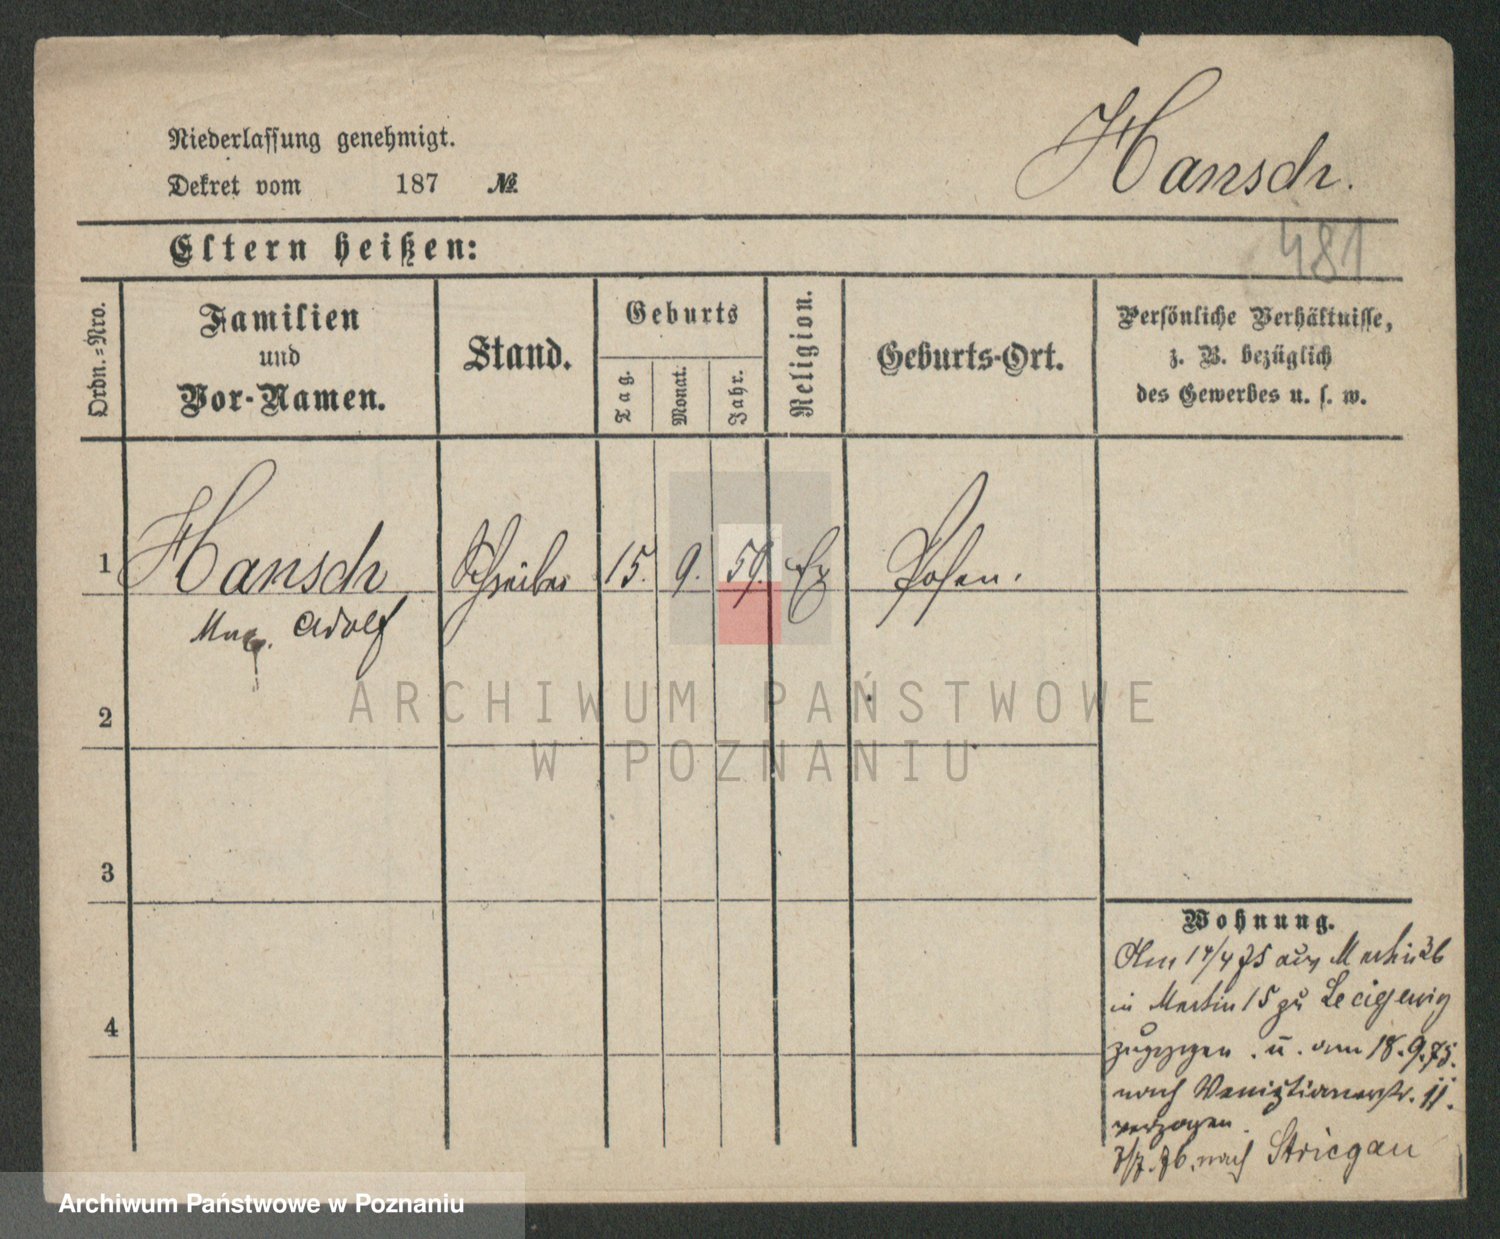 Niederlassung genehmigt.
Dekret vom 187 №
Hansch.
481
Eltern heißen:
Ordn.=Nro.
Familien
und
Vor-Namen.
Stand.
Geburts
Tag.
Monat.
Jahr.
Religion.
Geburts-Ort.
Persönliche Verhältnisse,
z. B. bezüglich
des Gewerbes u. s. w.
1 Hansch Schreiber 15. 9. 59. Posen.
Adolf
2
3
4
Wohnung.
Am 14/4 75 aus Martin 26
in Martin 15 zu
zugezogen . u. am 18.9.75.
nach Venizianerstr. 11.
verzogen.
7/7. 76. nach Striegau
ARCHIWUM PAŃSTWOWE
W POZNANIU
Archiwum Państwowe w Poznaniu